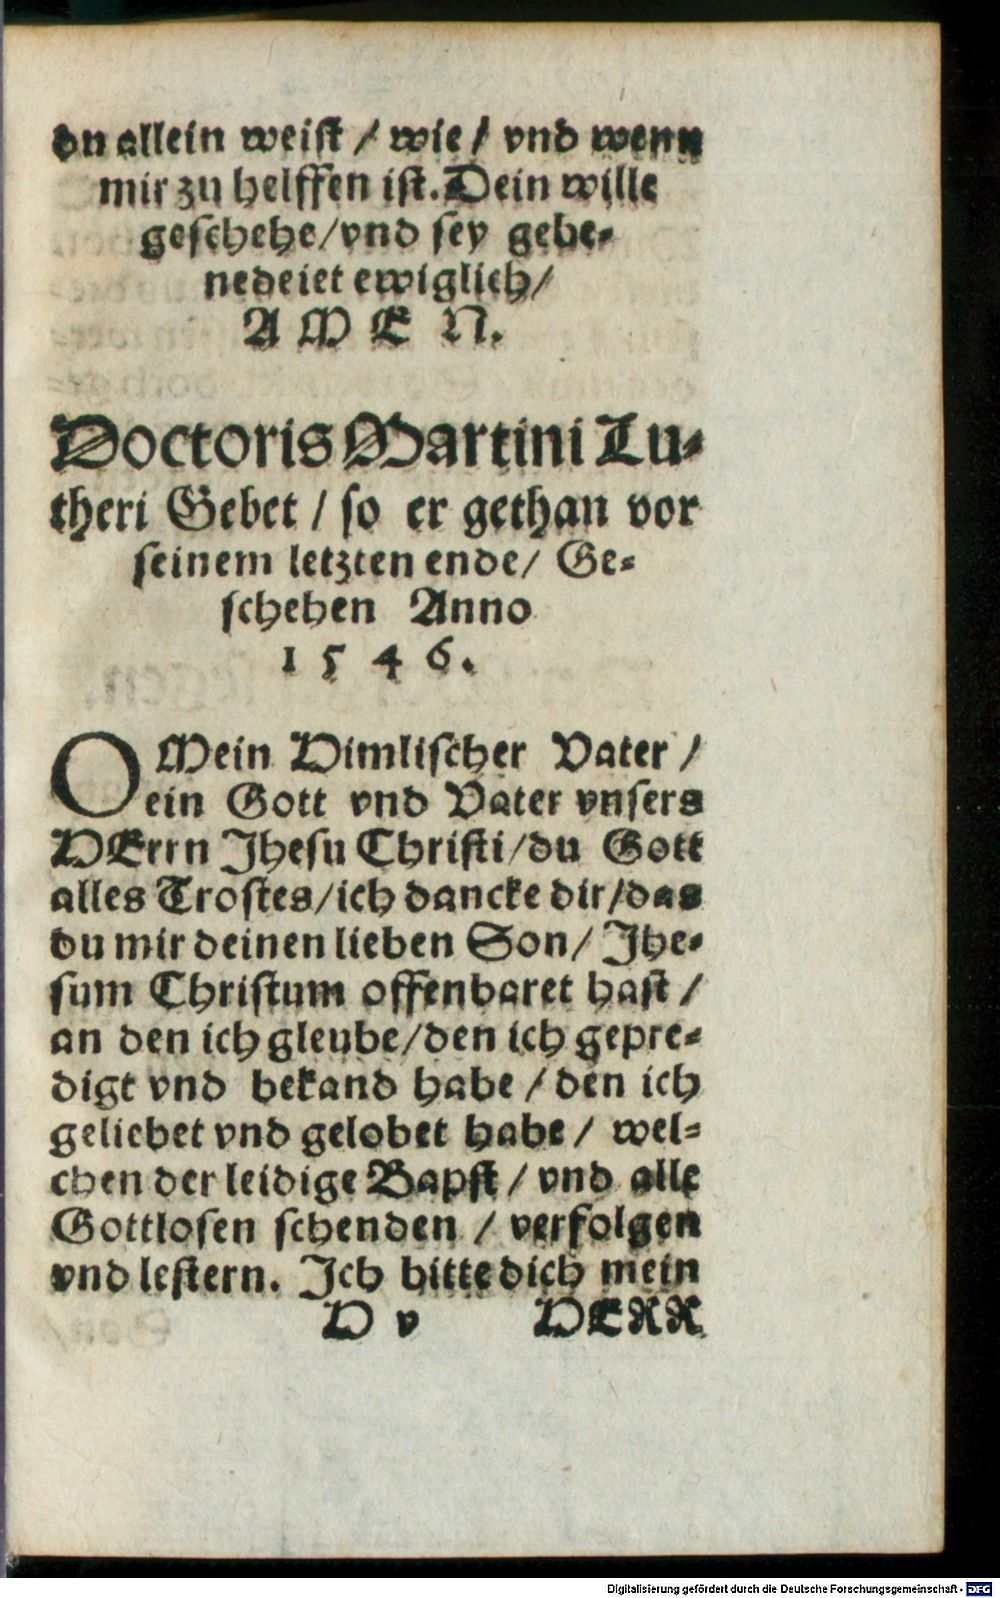 du allein weist / wie / vnd wenn
mir zu helffen ist. Dein wille
geschehe/vnd sey gebe-
nedeiet ewiglich/
A M E N.
Doctoris Martini Lu-
theri Gebet / so er gethan vor
seinem letzten ende/ Ge-
schehen Anno
1 5 4 6.
O Mein Himlischer Vater /
ein Gott vnd Vater vnsers
HErrn Jhesu Christi/du Gott
alles Trostes/ich dancke dir/das
du mir deinen lieben Son/ Jhe-
sum Christum offenbaret hast /
an den ich gleube/den ich gepre-
digt vnd bekand habe / den ich
geliebet vnd gelobet habe / wel-
chen der leidige Bapst / vnd alle
Gottlosen schenden / verfolgen
vnd lestern. Jch bitte dich mein
H v HERR
Digitalisierung gefördert durch die Deutsche Forschungsgemeinschaft - DFG